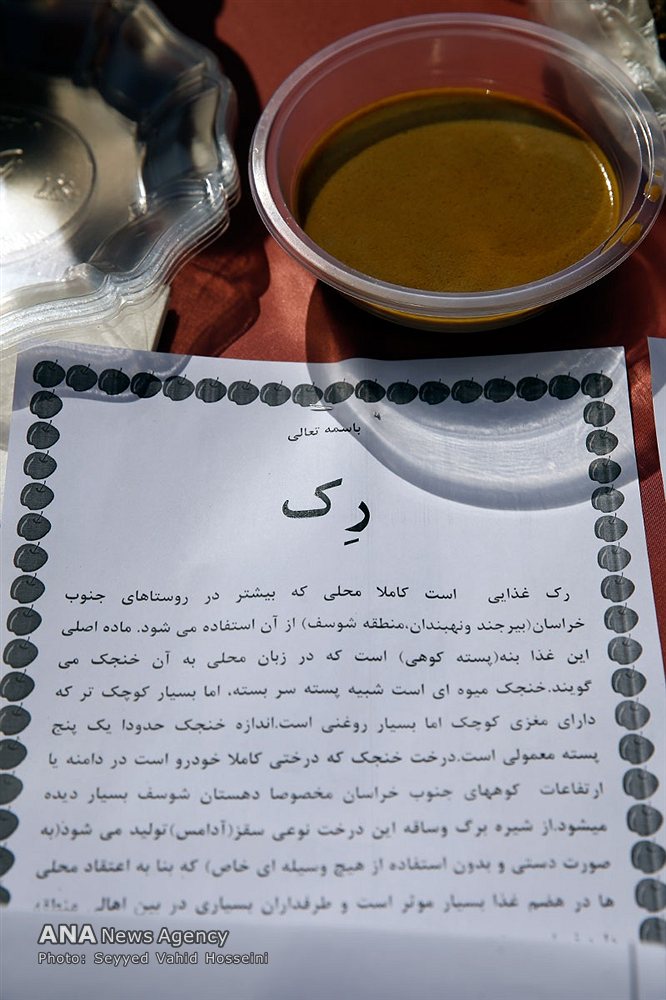 باسمه تعالی
رِک
رک غذایی است کاملا محلی که بیشتر در روستاهای جنوب
خراسان(بیرجند ونهبندان،منطقه شوسف) از آن استفاده می شود. ماده اصلی
این غذا بنه(پسته کوهی) است که در زبان محلی به آن خنجک می
گویند.خنجک میوه ای است شبیه پسته سر بسته، اما بسیار کوچک تر که
دارای مغزی کوچک اما بسیار روغنی است.اندازه خنجک حدودا یک پنج
پسته معمولی است.درخت خنجک که درختی کاملا خودرو است در دامنه یا
ارتفاعات کوههای جنوب خراسان مخصوصا دهستان شوسف بسیار دیده
میشود.از شیره برگ وساقه این درخت نوعی سقز(آدامس)تولید می شود(به
صورت دستی و بدون استفاده از هیچ وسیله ای خاص) که بنا به اعتقاد محلی
ها در هضم غذا بسیار موثر است و طرفداران بسیاری در بین اهالی منطقه
ANA News Agency
Photo: Seyyed Vahid Hosseini